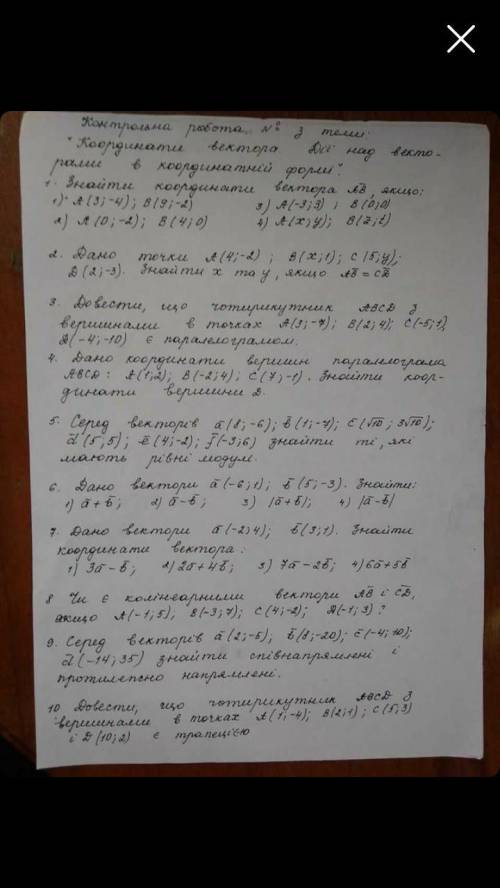 Контрольна работа № з теми:
"Координати вектора Дії над векто-
рами в координатній формі".
1. Знайти координати вектора AB, якщо:
1) A(3;-4); B(9;-2) 3) A(-3;3); B(0;0)
2) A(0;-2); B(4;0) 4) A(x;y); B(z;t)
2. Дано точки A(4;-2); B(x;1); C(5;y);
D(2;-3). Знайти x та y, якщо AB=CD
3. Довести, що чотирикутник ABCD з
вершинами в точках A(3;-7); B(2;4); C(-5;1)
D(-4;-10) є паралелограмом.
4. Дано координати вершин паралелограма
ABCD: A(1;2); B(-2;4); C(7;-1). Знайти коор-
динати вершини D.
5. Серед векторів a(8;-6); b(1;-7); c(√10; 3√10);
d(5;5); e(4;-2); f(-3;6) знайти ті, які
мають рівні модулі.
6. Дано вектори a(-6;1); b(5;-3). Знайти:
1) a+b; 2) a-b; 3) |a+b|; 4) |a-b|
7. Дано вектори a(-2;4); b(3;1). Знайти
координати вектора:
1) 3a-b; 2) 2a+4b; 3) 7a-2b; 4) 6a+5b
8 Чи є колінеарними вектори AB і CD,
якщо A(-1;5); B(-3;7); C(4;-2); D(-1;3)?
9. Серед векторів a(2;-5); b(8;-20); c(-4;10);
d(-14;35) знайти співнапрямлені і
протилежно напрямлені.
10 Довести, що чотирикутник ABCD з
вершинами в точках A(1;-4); B(2;1); C(5;3)
і D(10;2) є трапецією